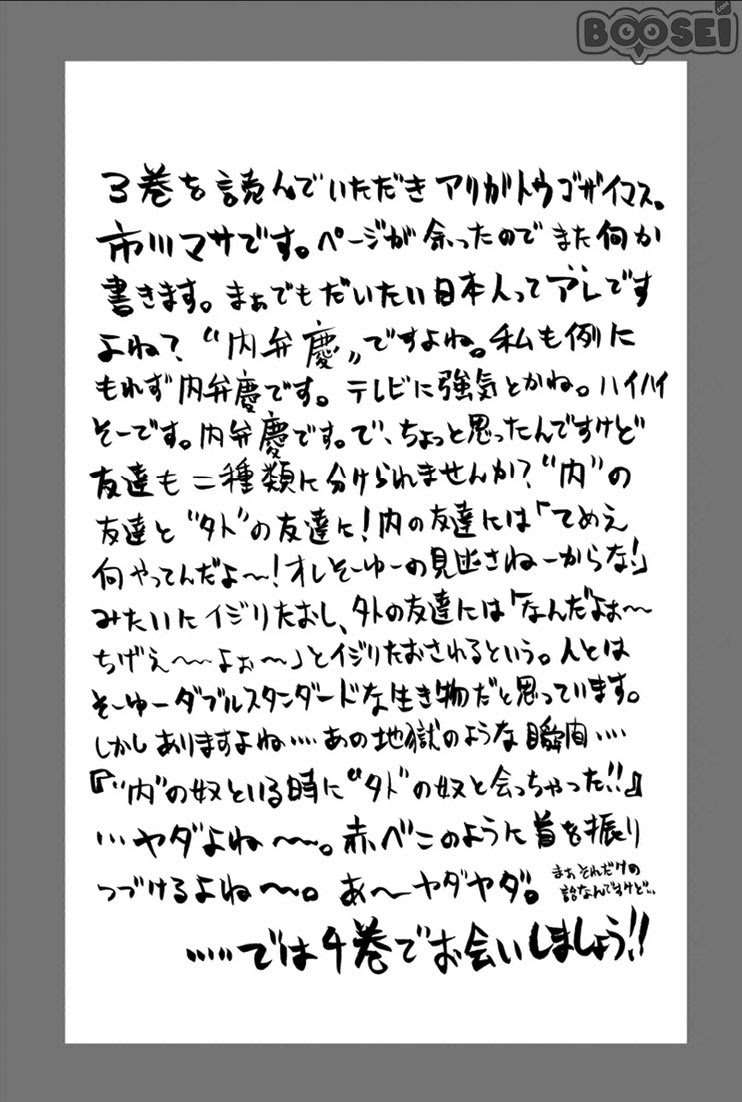 BOOSEI.com
3巻を読んでいただきアリガトウゴザイマス。
市川マサです。ページが余ったのでまた何か
書きます。まぁでもだいたい日本人ってアレです
よね?“内弁慶”ですよね。私も例に
もれず内弁慶です。テレビに強気とかね。ハイハイ
そーです。内弁慶です。で、ちょっと思ったんですけど
友達も二種類に分けられませんか?“内”の
友達と“外”の友達に!内の友達には「てめえ
何やってんだよ〜!オレそーゆーの見逃さねーからな!」
みたいにイジりたおし、外の友達には「なんだよぉ〜
ちげぇ〜〜よぉ〜」とイジりたおされるという。人とは
そーゆーダブルスタンダードな生き物だと思っています。
しかしありますよね‥‥あの地獄のような瞬間‥‥
『“内”の奴といる時に“外”の奴と会っちゃった!!』
…ヤダよね〜〜。赤べこのように首を振り
つづけるよね〜〜。あ〜ヤダヤダ。
まぁそれだけの
話なんですけど…
……では4巻でお会いしましょう!!